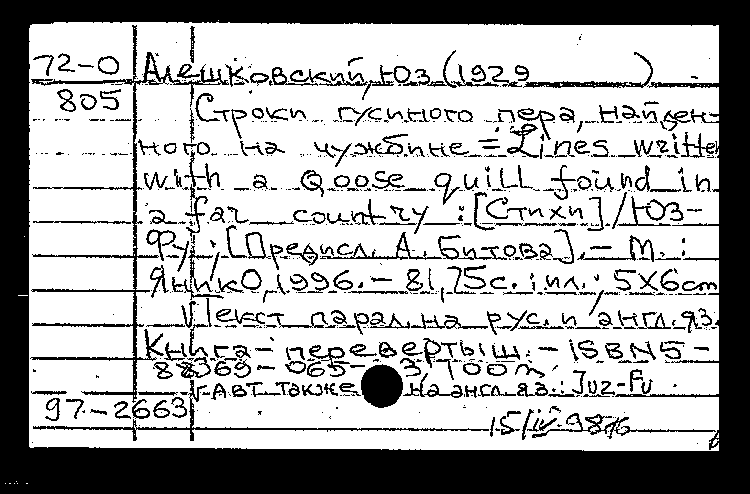 72-0 Алешковский, Юз (1929 )
805 Строки гусиного пера, найден-
ного на чужбине = Lines written
with a Goose quill found in
a far country : [Стихи] / Юз-
Фу ; [Предисл. А. Битова]. - М. :
Яник0, 1996. - 81, 75 с. : ил. ; 5X6cm
Текст парал. на рус. и англ. яз.
Книга-перевертыш. - ISBN 5-
88369-065-3, 100
Авт также на англ яз.: Juz-Fu
97-2663
15/IV-98